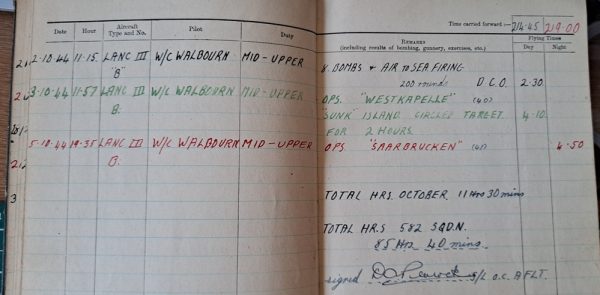 Time carried forward :— 214.45 219.00
Date Hour Aircraft Type and No. Pilot Duty REMARKS (including results of bombing, gunnery, exercises, etc.) Flying Times
Day Night
2-10-44 11-15 LANC III W/C WALBOURN MID-UPPER 8. BOMBS + AIR TO SEA FIRING
"B" 200 rounds D.C.O. 2·30
3-10-44 11-57 LANC III W/C WALBOURN MID-UPPER OPS. "WESTKAPELLE" (40)
B. "SUNK" ISLAND CIRCLED TARGET 4·10
FOR 2 HOURS.
5-10-44 19-35 LANC III W/C WALBOURN MID-UPPER OPS "SAARBRUCKEN" (41) 4·50
B.
TOTAL HRS. OCTOBER 11 Hrs 30 mins
TOTAL HRS 582 SQDN.
85 Hrs 40 mins.
signed S/L O.C. A FLT.